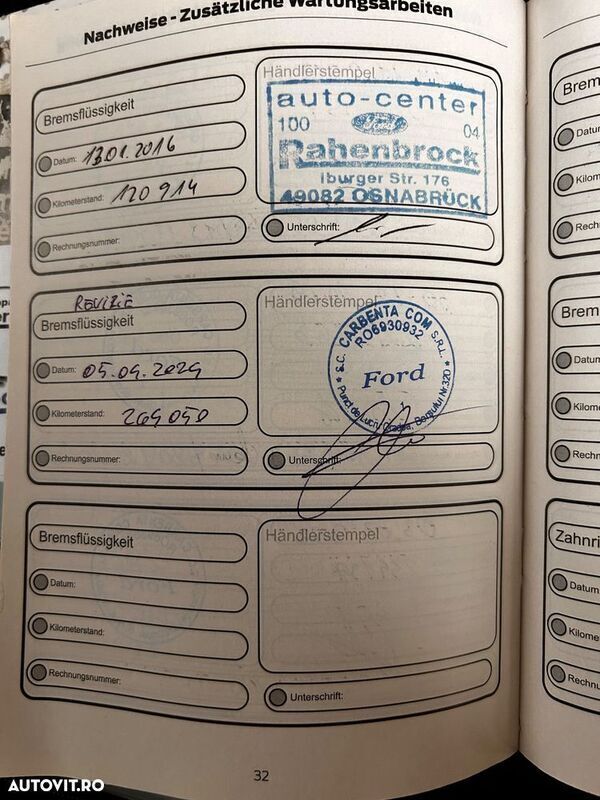 Nachweise - Zusätzliche Wartungsarbeiten
Bremsflüssigkeit
Datum: 13.01.2016
Kilometerstand: 120 914
Rechnungsnummer:
Händlerstempel
auto-center
100 Ford 04
Rahenbrock
Iburger Str. 176
49082 OSNABRÜCK
Unterschrift:
REVIZIE
Bremsflüssigkeit
Datum: 05.09.2024
Kilometerstand: 269 050
Rechnungsnummer:
Händlerstempel
S.C. CARBENTA COM S.R.L.
RO6930932
Ford
Punct de Lucru Oradea, Borsului Nr.320
Unterschrift:
Bremsflüssigkeit
Datum:
Kilometerstand:
Rechnungsnummer:
Händlerstempel
Unterschrift:
32
Brem
Datum
Kilom
Rechn
Brem
Datum
Kilom
Rechn
Zahnri
Datum
Kilome
Rechnu
AUTOVIT.RO